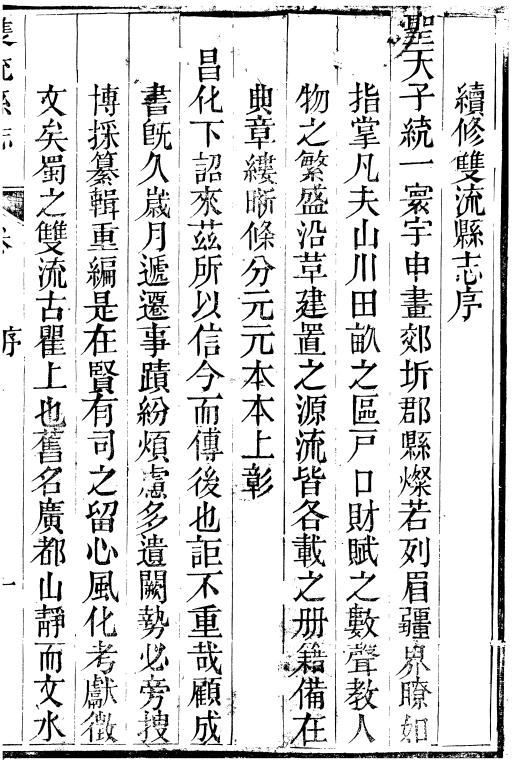 續修雙流縣志序
聖天子統一寰宇申畫郊圻郡縣燦若列眉疆界瞭如
指掌凡夫山川田畝之區戸口財賦之數聲教人
物之繁盛沿革建置之源流皆各載之册籍備在
典章縷晰條分元元本本上彰
昌化下詔來茲所以信今而傳後也詎不重哉顧成
書旣久歲月遞遷事蹟紛煩慮多遺闕勢必旁搜
博採纂輯重編是在賢有司之留心風化考獻徵
文矣蜀之雙流古瞿上也舊名廣都山靜而文水
雙流縣志 卷 序 一